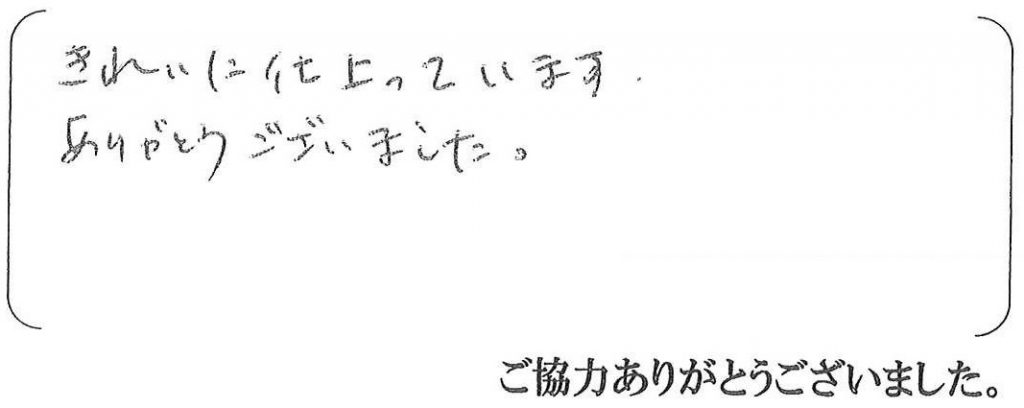 きれいに仕上っています.
ありがとうございました。
ご協力ありがとうございました。